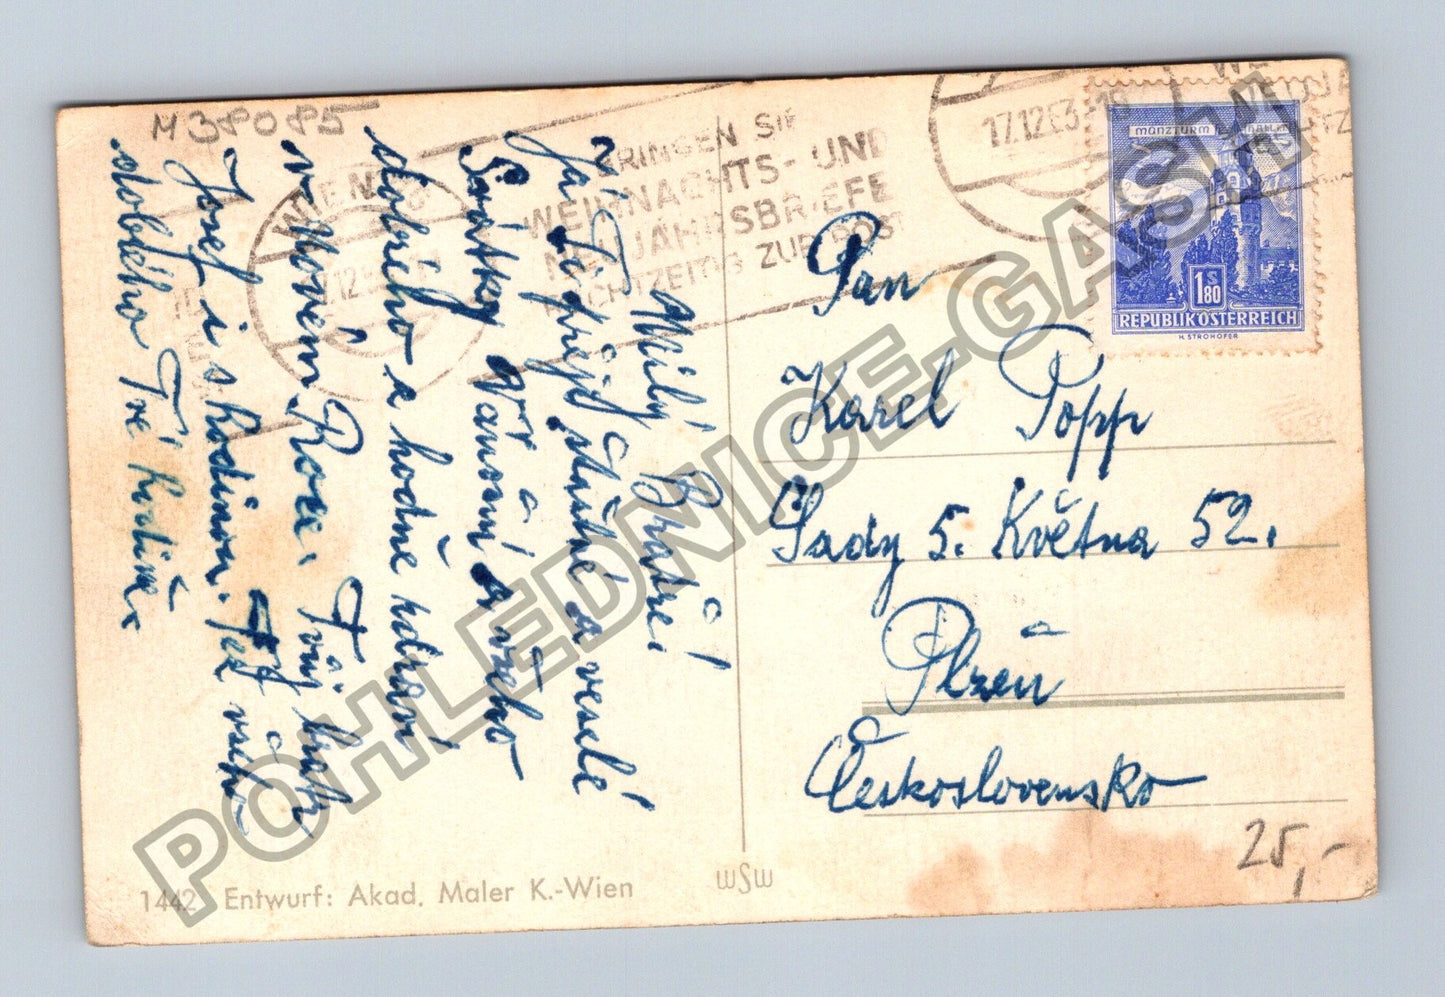 M38085
WIEN
BRINGEN SIE
WEIHNACHTS- UND
NEUJAHRSBRIEFE
RECHTZEITIG ZUR POST
17.12.63-18
MÜNZTURM
1S80
REPUBLIK ÖSTERREICH
H. STROHOFER
Milý Bratře!
Já Ti přeji šťastné a veselé
Svátky Vánoční a všeho
dobrého a hodně zdraví
v Novém Roce. Tvůj bratr
Josef i s rodinou. Též vše
dobrého Tvé rodině.
Pan
Karel Popp
Sady 5. Května 52.
Plzeň
Československo
25,-
1442 Entwurf: Akad. Maler K.-Wien
WSW
POHLEDNICE-GASM